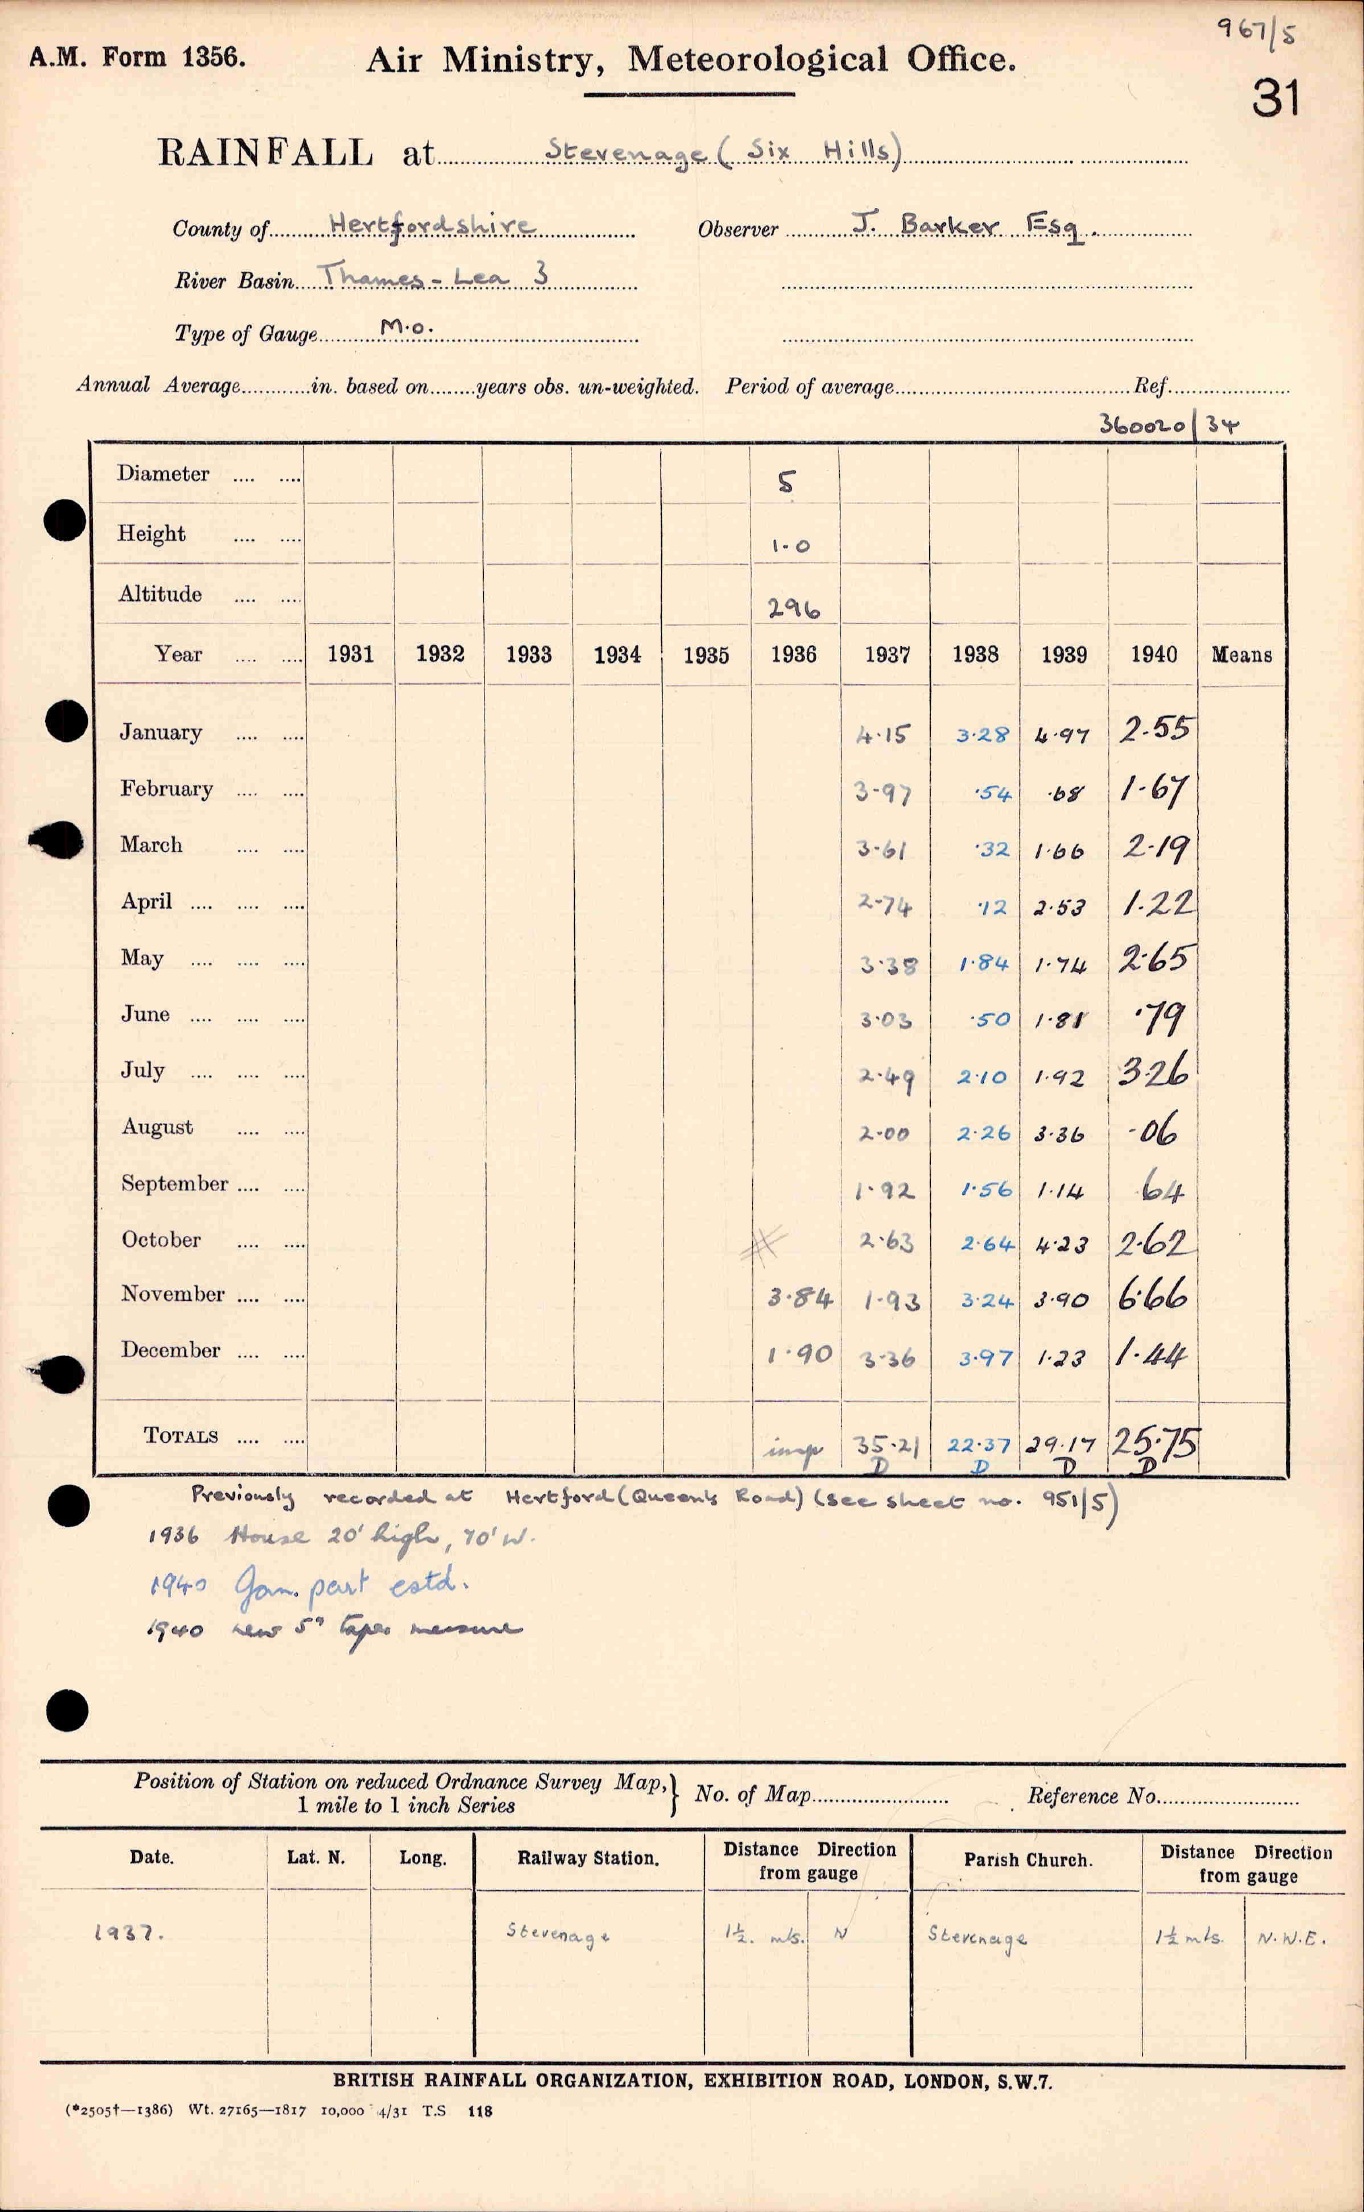 967/5
A.M. Form 1356. Air Ministry, Meteorological Office.
31
RAINFALL at Stevenage (Six Hills)
County of Hertfordshire Observer J. Barker Esq.
River Basin Thames - Lea 3
Type of Gauge M.O.
Annual Average in. based on years obs. un-weighted. Period of average Ref.
360020/34
Diameter 5
Height 1·0
Altitude 296
Year 1931 1932 1933 1934 1935 1936 1937 1938 1939 1940 Means
January 4·15 3·28 4·97 2·55
February 3·97 ·54 ·68 1·67
March 3·61 ·32 1·66 2·19
April 2·74 ·12 2·53 1·22
May 3·38 1·84 1·74 2·65
June 3·03 ·50 1·81 ·79
July 2·49 2·10 1·92 3·26
August 2·00 2·26 3·36 ·06
September 1·92 1·56 1·14 64
October # 2·63 2·64 4·23 2·62
November 3·84 1·93 3·24 3·90 6·66
December 1·90 3·36 3·97 1·23 1·44
TOTALS imp 35·21 22·37 29·17 25·75
D D D D
Previously recorded at Hertford (Queen's Road) (see sheet no. 951/5)
1936 House 20' high, 70' W.
1940 Jan. part estd.
1940 new 5" taper measure
Position of Station on reduced Ordnance Survey Map,} No. of Map Reference No.
1 mile to 1 inch Series
Date. Lat. N. Long. Railway Station. Distance Direction from gauge Parish Church. Distance Direction from gauge
1937. Stevenage 1½. mls. N Stevenage 1½ mls. N.W.E.
BRITISH RAINFALL ORGANIZATION, EXHIBITION ROAD, LONDON, S.W.7.
(*2505†—1386) Wt. 27165—1817 10,000 4/31 T.S 118